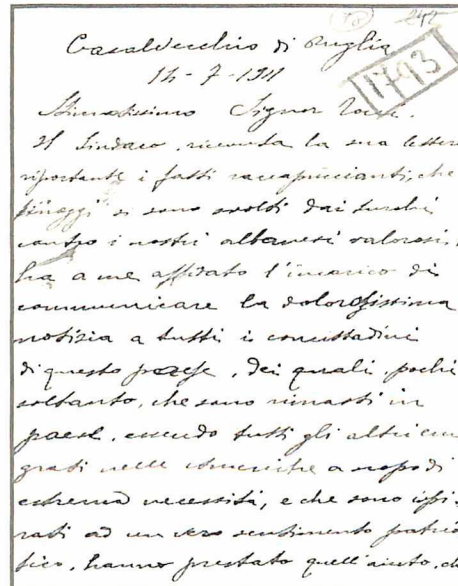 242
1793
Casalvecchio di Puglia
14-7-1911
Stimatissimo Signor
Il Sindaco, ricevuta la sua lettera
riportante i fatti raccapriccianti, che
finoggi si sono svolti dai turchi
contro i nostri albanesi valorosi,
ha a me affidato l'incarico di
communicare la dolorosissima
notizia a tutti i concittadini
di questo paese, dei quali, pochi
soltanto, che sono rimasti in
paese, essendo tutti gli altri emi
grati nelle Americhe a scopo di
estrema necessità, e che sono ispi-
rati ad un vero sentimento patrio
tico, hanno prestato quell'aiuto, ch